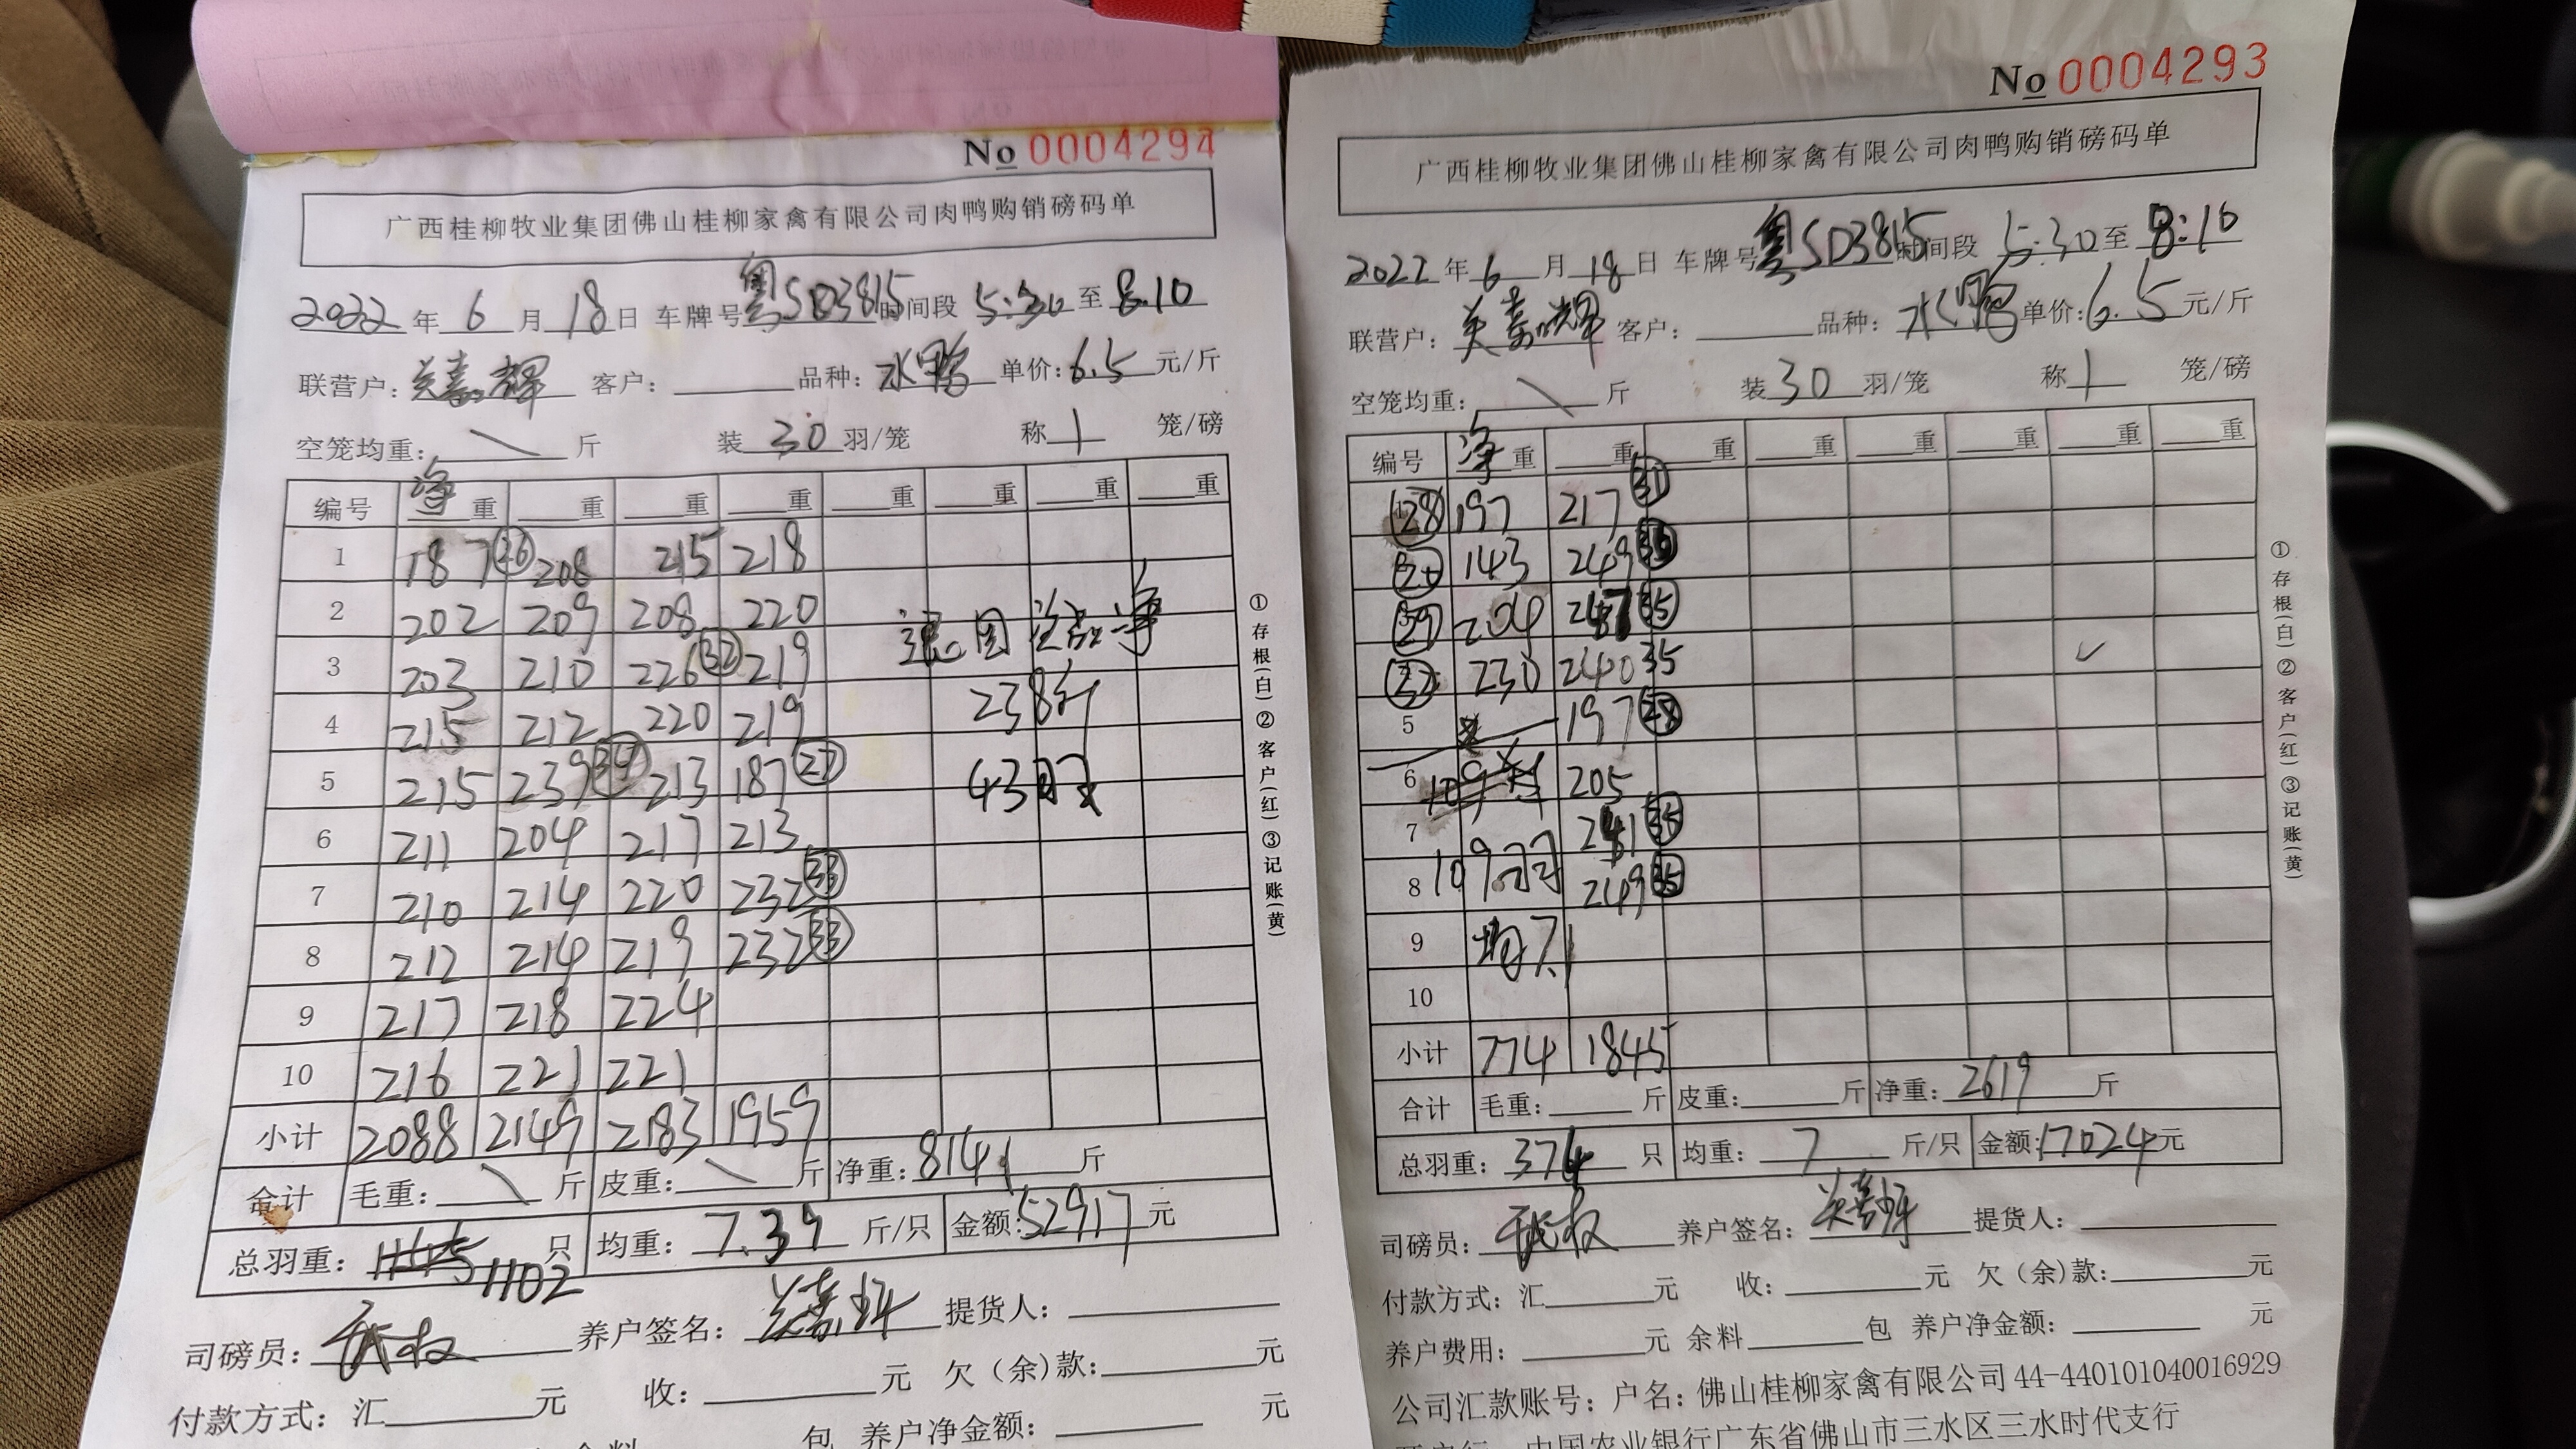 No 0004294
广西桂柳牧业集团佛山桂柳家禽有限公司肉鸭购销磅码单
2022 年 6 月 18 日 车牌号 粤SD3815 时间段 5:30 至 8.10
联营户: 关嘉辉 客户: 品种: 水鸭 单价: 6.5 元/斤
空笼均重: \ 斤 装 30 羽/笼 称 1 笼/磅
编号 净重 重 重 重 重 重 重 重
1 187 (26) 208 215 218
2 202 209 208 220
3 203 210 226 (32) 219
4 215 212 220 219
5 215 239 (34) 213 187 (27)
6 211 204 217 213
7 210 214 220 232 (33)
8 212 214 219 232 (33)
9 217 218 224
10 216 221 221
238斤
43只
小计 2088 2149 2183 1959
合计 毛重: \ 斤 皮重: \ 斤 净重: 8141 斤
总羽重: 1145 1102 只 均重: 7.39 斤/只 金额: 52917 元
司磅员: 养户签名: 提货人:
付款方式: 汇 元 收: 元 欠(余)款: 元
包 养户净金额: 元
①存根(白)②客户(红)③记账(黄)
No 0004293
广西桂柳牧业集团佛山桂柳家禽有限公司肉鸭购销磅码单
2022 年 6 月 18 日 车牌号 粤SD3815 时间段 5:30 至 8:10
联营户: 关嘉辉 客户: 品种: 水鸭 单价: 6.5 元/斤
空笼均重: \ 斤 装 30 羽/笼 称 1 笼/磅
编号 净重 重 重 重 重 重 重 重
(28) 197 217 (31)
143 249
(29) 204 247 (35)
(32) 230 240 35
5 197 (28)
6 205
7 241 (35)
8 109只 249 (35)
9 均7.1
10
小计 774 1845
合计 毛重: 斤 皮重: 斤 净重: 2619 斤
总羽重: 374 只 均重: 7 斤/只 金额: 17024 元
司磅员: 养户签名: 提货人:
付款方式: 汇 元 收: 元 欠(余)款: 元
养户费用: 元 余料 包 养户净金额: 元
公司汇款账号: 户名: 佛山桂柳家禽有限公司 44-440101040016929
中国农业银行广东省佛山市三水区三水时代支行
①存根(白)②客户(红)③记账(黄)